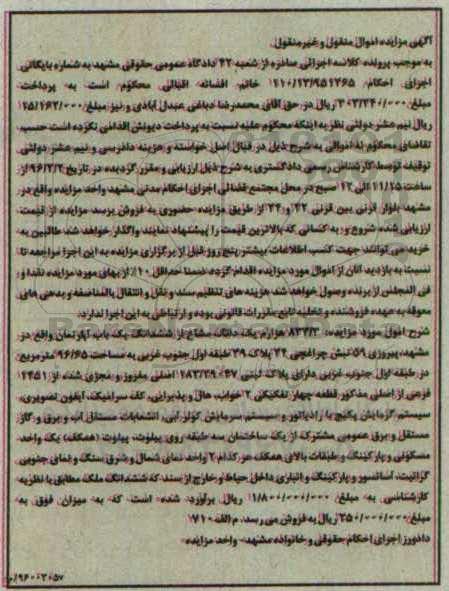 آگهی مزایده اموال منقول و غیرمنقول.
به موجب پرونده کلاسه اجرائی صادره از شعبه ۴۲ دادگاه عمومی حقوقی مشهد به شماره بایگانی
اجرای احکام خانم افسانه اقبالی محکوم است به پرداخت
مبلغ ریال در حق آقای محمدرضا دباغی عبدل آبادی و نیز مبلغ
ریال نیم عشر دولتی نظر به اینکه محکوم علیه نسبت به پرداخت دیونش اقدامی نکرده است حسب
تقاضای محکوم له اموالی به شرح ذیل در قبال اصل خواسته و هزینه دادرسی و نیم عشر دولتی
توقیف توسط کارشناس رسمی دادگستری به شرح ذیل ارزیابی و مقرر گردیده در تاریخ ۹۶/۲/۲ از
ساعت ۱۱/۲۵ الی ۱۲ صبح در محل مجتمع قضائی اجرای احکام مدنی مشهد واحد مزایده واقع در
مشهد بلوار قرنی بین قرنی ۳۲ و ۳۴ از طریق مزایده حضوری به فروش برسد مزایده از قیمت
ارزیابی شده شروع و به کسانی که بالاترین قیمت را پیشنهاد نمایند واگذار خواهد شد طالبین به
خرید می توانند جهت کسب اطلاعات بیشتر پنج روز قبل از برگزاری مزایده به این اجرا مراجعه تا
نسبت به بازدید آنان از اموال مورد مزایده اقدام گردد ضمنا حداقل ۱۰٪ از بهای مورد مزایده نقدا و
فی المجلس از برنده وصول خواهد شد هزینه های تنظیم سند و نقل و انتقال بالمناصفه و بدهی های
معوقه به عهده فروشنده و تخلیه تابع مقررات قانونی بوده و ارتباطی به این اجرا ندارد.
شرح اموال مورد مزایده: ۸۳۳/۳ هزارم یک دانگ مشاع از ششدانگ یک باب آپارتمان واقع در
مشهد، پیروزی ۵۹ نبش چراغچی ۳۴ پلاک ۳۹ طبقه اول جنوب غربی به مساحت ۹۶/۶۵ مترمربع
در طبقه اول جنوب غربی دارای پلاک ثبتی اصلی مفروز و مجزی شده از ۱۴۴۵۱
فرعی از اصلی مذکور قطعه چهار تفکیکی ۲ خواب، هال و پذیرایی، کف سرامیک، آیفون تصویری،
سیستم گرمایش پکیج با رادیاتور و سیستم سرمایش کولر آبی، انشعابات مستقل آب و برق و گاز
مستقل و برق عمومی مشترک از یک ساختمان سه طبقه روی پیلوت، پیلوت (همکف) یک واحد
مسکونی و پارکینگ و طبقات بالای همکف هر کدام ۲ واحد نمای شمال و شرق سنگ و نمای جنوبی
گرانیت، آسانسور و پارکینگ و انباری داخل حیاط و خارج از سند که ششدانگ ملک مطابق با نظریه
کارشناسی به مبلغ ۱/۸۰۰/۰۰۰/۰۰۰ ریال برآورد شده است که به میزان فوق به
مبلغ ۲۵۰/۰۰۰/۰۰۰ ریال به فروش می رسد. م الف ۷۱۰
دادورز اجرای احکام حقوقی و خانواده مشهد - واحد مزایده
/۹۶۰۰۳۰۵۷م